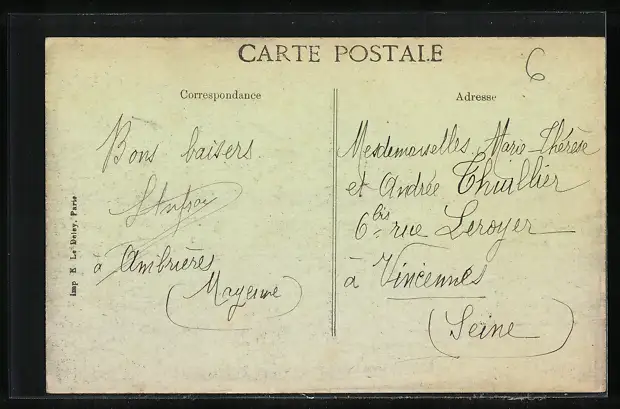 CARTE POSTALE
6
Correspondance
Bons baisers
à Ambrières
(Mayenne)
Adresse
Mesdemoiselles Marie-Thérèse
et Andrée Thuillier
6 bis rue Leroyer
à Vincennes
(Seine)
Imp E. Le Deley, Paris